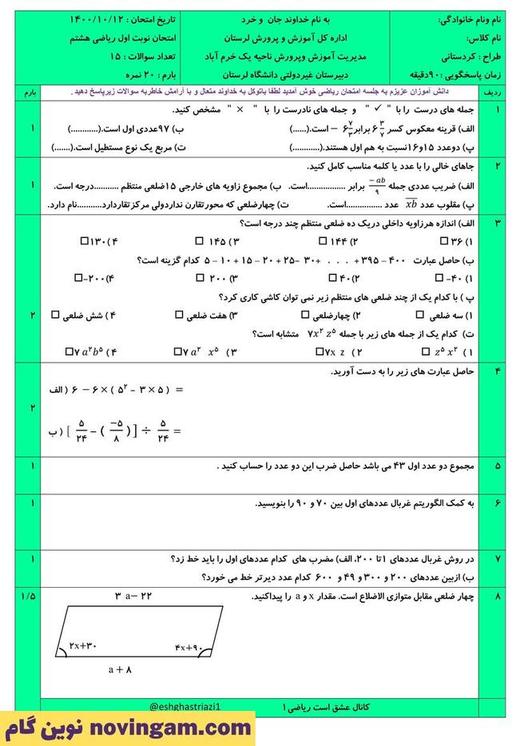 نام ونام خانوادگی:
به نام خداوند جان و خرد
تاریخ امتحان : ۱۴۰۰/۱۰/۱۲
نام کلاس:
اداره کل آموزش و پرورش لرستان
امتحان نوبت اول ریاضی هشتم
طراح : کردستانی
مدیریت آموزش وپرورش ناحیه یک خرم آباد
تعداد سوالات : ۱۵
زمان پاسخگویی :۹۰دقیقه
دبیرستان غیردولتی دانشگاه لرستان
بارم : ۲۰ نمره
ردیف
دانش آموزان عزیزم به جلسه امتحان ریاضی خوش آمدید لطفا باتوکل به خداوند متعال و با آرامش خاطربه سوالات زیرپاسخ دهید .
بارم
۱ جمله های درست را با " ✓ " و جمله های نادرست را با " × " مشخص کنید.
الف) قرینه معکوس کسر ۶ ۳/۷ برابر ۶ ۷/۳ – است.(......) ب) ۹۷عددی اول است.(............) ۱
پ) دوعدد ۱۵و۱۶نسبت به هم اول هستند.(............) ت) مربع یک نوع مستطیل است.(.......)
۲ جاهای خالی را با عدد یا کلمه مناسب کامل کنید.
الف) ضریب عددی جمله −ab/۹ برابر ................است. ب) مجموع زاویه های خارجی ۱۵ضلعی منتظم ..........درجه است. ۱
پ) مقلوب عدد xb عدد ...............است. ت) چهارضلعی که محورتقارن نداردولی مرکزتقاردارد..........نام دارد.
۳ الف) اندازه هرزاویه داخلی دریک ده ضلعی منتظم چند درجه است؟
۱) ۳۶ □ ۲) ۱۴۴ □ ۳) ۱۴۵ □ ۴) ۱۳۰ □
ب) حاصل عبارت ۴۰۰ – ۳۹۵ + . . . + ۳۰ – ۲۵ + ۲۰ – ۱۵ + ۱۰ – ۵ کدام گزینه است؟
۱) ۴۰- □ ۲) ۴۰ □ ۳) ۲۰۰ □ ۴) ۲۰۰- □
پ ) با کدام یک از چند ضلعی های منتظم زیر نمی توان کاشی کاری کرد؟
۱) سه ضلعی □ ۲) چهارضلعی □ ۳) هفت ضلعی □ ۴) شش ضلعی □ ۲
ت) کدام یک از جمله های زیر با جمله ۷x² z⁵ متشابه است؟
۱) z⁵ x² □ ۲) ۷x z □ ۳) ۷ a² x⁵ □ ۴) ۷ a²b⁵ □
۴ حاصل عبارت های زیر را به دست آورید.
الف) ۶ – ۶ × ( ۵² – ۳ × ۵ ) =
۲
ب) [ ۵/۲۴ – ( −۵/۸ ) ] ÷ ۵/۲۴ =
۵ مجموع دو عدد اول ۴۳ می باشد حاصل ضرب این دو عدد را حساب کنید . ۱
۶ به کمک الگوریتم غربال عددهای اول بین ۷۰ و ۹۰ را بنویسید. ۱
۷ در روش غربال عددهای ۱تا ۲۰۰، الف) مضرب های کدام عددهای اول را باید خط زد؟ ۱
ب) ازبین عددهای ۲۰۰ و ۳۰۰ و ۴۹ و ۶۰۰ کدام عدد دیرتر خط می خورد؟
۸ چهار ضلعی مقابل متوازی الاضلاع است. مقدار x و a را پیداکنید. ۱/۵
۳ a– ۲۲
۲x+۳۰
۴x+۹۰
a + ۸
کانال عشق است ریاضی۱
@eshghastriazi1
نوین گام novingam.com